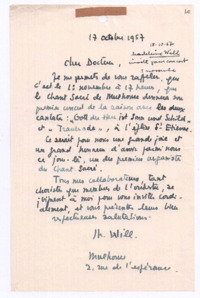 17 octobre 1957
18.10.57
Cher Docteur,
Je me permets de vous rappeler, que
c'est le 15 novembre à 17 heures, que
le Chant Sacré de Mulhouse donnera son
premier concert de la saison avec les deux
cantates : Gott der Herr ist Sonn und Schild,
et « Trauerode », à l'église St Etienne.
Ce serait pour nous une grande joie et
un grand honneur d'avoir parmi nous
ce jour-là, un des premiers
du Chant Sacré.
Tous mes collaborateurs, tant
choristes que membres de l'orchestre, se
joignent à moi pour vous inviter cordi-
alement, et vous présentent leurs bien
respectueuses salutations.
M. Will.
Mulhouse
2, rue de l'espérance.